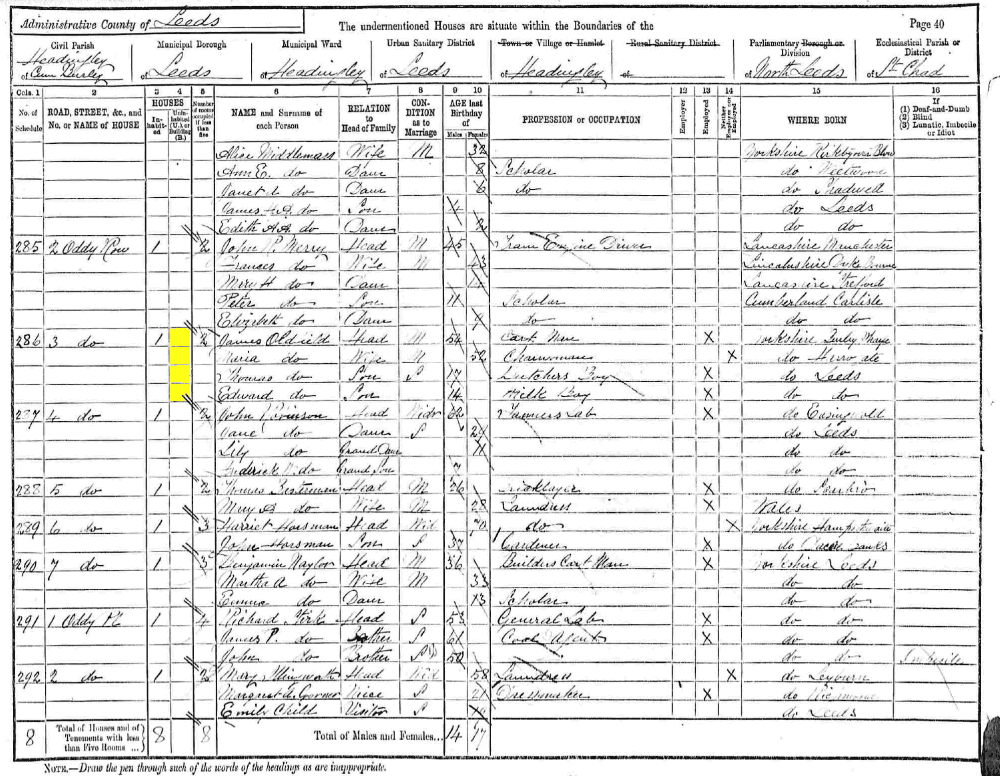 Administrative County of Leeds The undermentioned Houses are situate within the Boundaries of the Page 40
Civil Parish Municipal Borough Municipal Ward Urban Sanitary District Town or Village or Hamlet Rural Sanitary District Parliamentary Borough or Division Ecclesiastical Parish or District
Headingley cum Burley of Leeds of Headingley of Leeds of Headingley of of North Leeds of St Chad
Cols. 1 2 3 4 5 6 7 8 9 10 11 12 13 14 15 16
No. of Schedule ROAD, STREET, &c., and No. or NAME of HOUSE HOUSES Inhabited Uninhabited (U.) or Building (B.) Number of rooms occupied if less than five NAME and Surname of each Person RELATION to Head of Family CONDITION as to Marriage AGE last Birthday of Males Females PROFESSION or OCCUPATION Employer Employed Neither Employer nor Employed WHERE BORN If (1) Deaf-and-Dumb (2) Blind (3) Lunatic, Imbecile or Idiot
Alice Middlemass Wife M 32 Yorkshire
Ann E. do Daur 8 Scholar do Weetwood
Janet do Daur 6 do do
James H. A. do Son 4 do Leeds
Edith A. A. do Daur 2 do do
285 2 Oddy Row 1 2 John R. Merry Head M 45 Tram Engine Driver Lancashire Manchester
Frances do Wife M 43 Lincolnshire
Mary H do Daur Lancashire Stretford
Peter do Son 11 Scholar Cumberland Carlisle
Elizabeth do Daur do do do
286 3 do 1 2 James Oldfield Head M 54 Cart Man X Yorkshire
Maria do Wife M 52 Charwoman X do
Thomas do Son S 17 Butchers Boy X do Leeds
Edward do Son 14 Milk Boy X do do
287 4 do 1 2 John Robinson Head Widr 62 Lab X do Easingwold
Jane do Daur S do Leeds
Lily do Grand Daur 11 do do
Frederick W. do Grand Son 7 do do
288 5 do 1 2 Thomas Head M 26 Bricklayer X do
Mary A do Wife M 28 Laundress X Wales
289 6 do 1 3 Harriet Horsman Head Wid 70 do X Yorkshire Hampsthwaite
John Horsman Son S 37 Gardener X do Dacre Banks
290 7 do 1 3 Benjamin Naylor Head M 36 Builders Cart Man X Yorkshire Leeds
Martha A do Wife M 33 do do
Emma do Daur 13 Scholar do do
291 1 Oddy Pl 1 4 Richard Kirk Head S 53 General Lab X do do
James P. do Brother S 61 Coal Agent X do do
John do Brother S 50 do do Imbecile
292 2 do 1 2 Mary Illingworth Head Wid 58 Laundress X do Leyburn
Margaret A. Niece S 21 Dressmaker X do Richmond
Emily Child Visitor S do Leeds
8 Total of Houses and of Tenements with less than Five Rooms 8 8 Total of Males and Females... 14 17
NOTE.—Draw the pen through such of the words of the headings as are inappropriate.